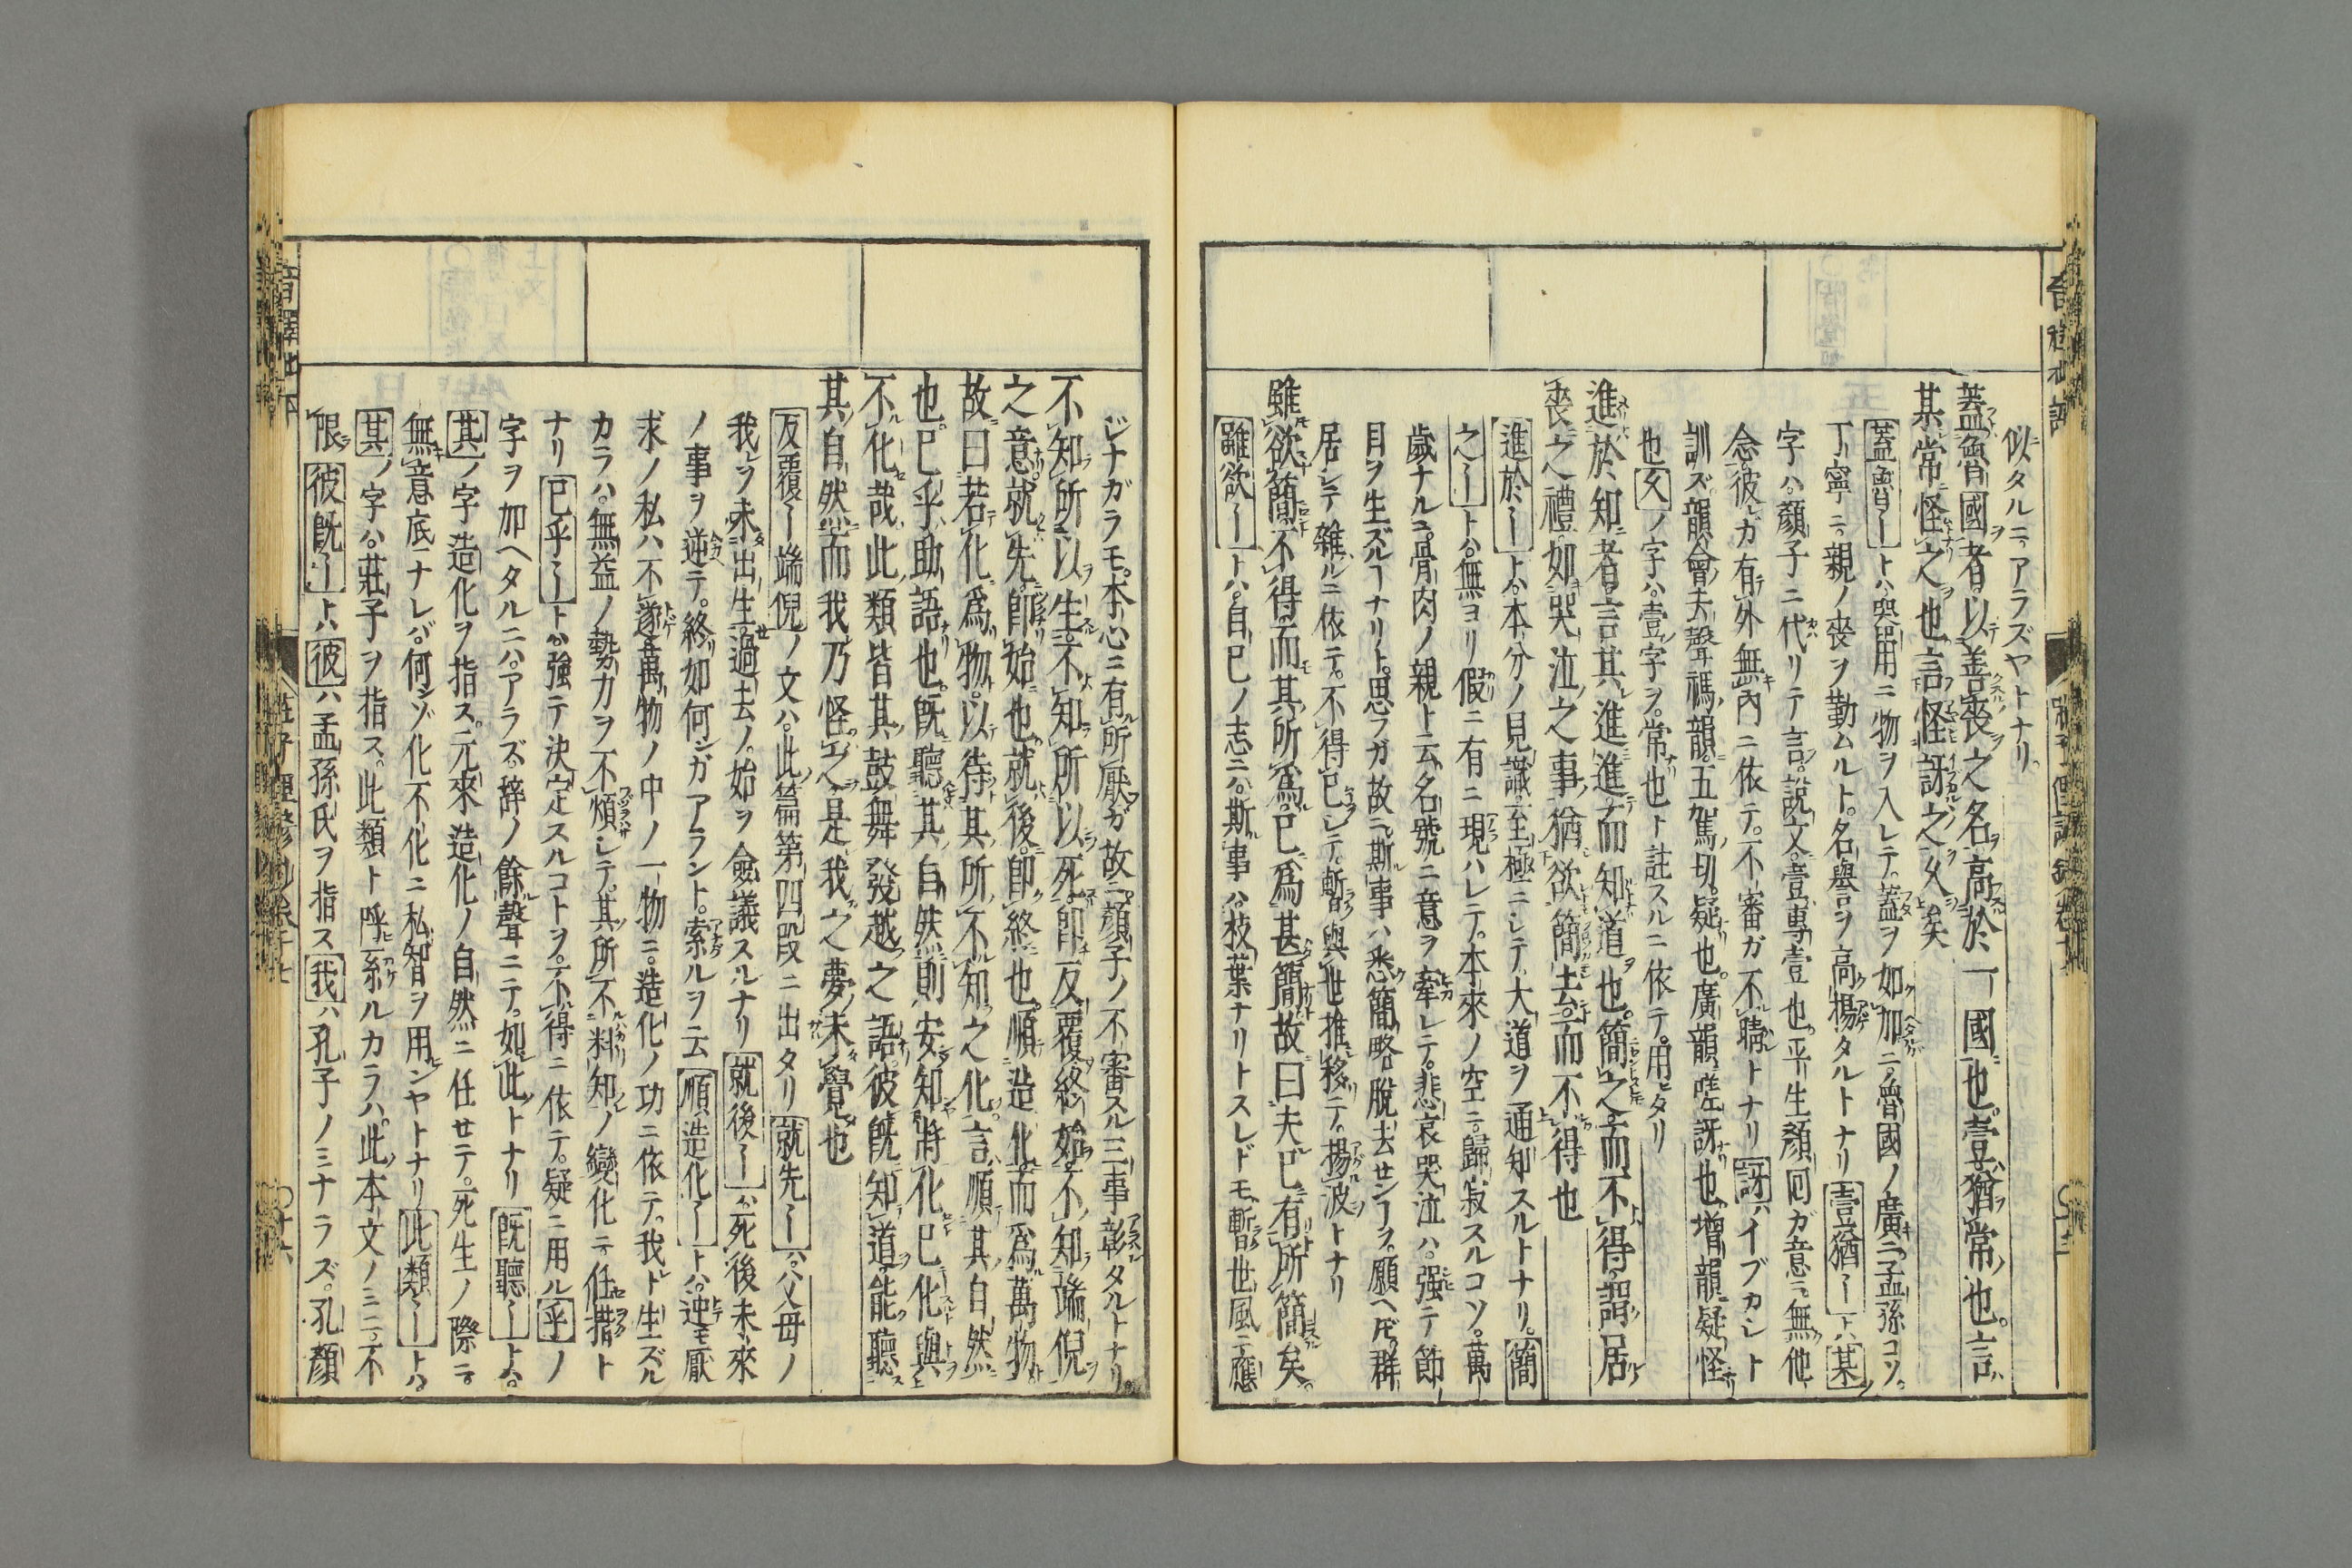 似タルニアラズヤトナリ
蓋魯國者以善喪之名高於一國也壹猶常也言
某常怪之也言怪訝之攵矣
蓋魯〡トハ與用ニ物ヲ入レテ蓋ヲ如加ニノ魯國ノ廣ニ孟孫コソ
丁寧ニ親ノ喪ヲ勤ムルト名譽ヲ高揚タルトナリ壹猶〡トハ某ノ
字ハ顏子ニ代リテ言說文壹專壹也平生顏回ガ意ニ無他
念彼ガ有外無內ニ依テ不審ガ不晴トナリ訝ハイブカレト
訓ズ韻會去聲禡韻五駕切疑也廣韻嗟訝也增韻疑怪
也攵ノ字ハ壹字ヲ常也ト註スルニ依テ用ヒタリ
進於知者言其進進而知道也簡之而不得謂居
喪之禮如哭泣之事猶欲簡去而不得也
進於〡トハ本分ノ見識至極ニシテ大道ヲ通知スルトナリ簡
之〡トハ無ヨリ假ニ有ニ現ハレテ本來ノ空ニ歸寂スルコソ萬
歲ナルニ骨肉ノ親ト云名號ニ意ヲ牽レテ悲哀哭泣ハ强テ節
目ヲ生ズルヿナリト思ラガ故ニ斯事ハ悉簡略脫去セシヿヲ願ヘドモ群
居シテ雜ルニ依テ不得已シテ暫與世推移テ揚波トナリ
雖欲簡不得而其所爲已爲甚簡故曰夫已有所簡矣
雖欲〡トハ自已ノ志ニハ斯事ハ枝葉ナリトスレドモ暫世風ニ應
ジナガラモ本心ニ有所厭ガ故ニ顏子ノ不審スル三事彰タルトナリ
不知所以生不知所以死即反覆終始不知端倪
之意就先即始也就後即終也順造化而爲萬物
故曰若化爲物以待其所不知之化言順其自然
也已乎助語也旣聽其自然則安知將化已化與
不化哉此類皆其鼓舞發越之語彼旣知道能聽
其自然而我乃怪之是我之夢未覺也
反覆〡端倪ノ文ハ此篇第四段ニ出タリ就先〡ハ父母ノ
我ヲ未出生過去ノ始ヲ僉議スルナリ就後〡ハ死後未來
ノ事ヲ逆テ終如何シガアラント索ルヲ云順造化〡トハ逆モ厭
求ノ私ハ不遂萬物ノ中ノ一物ニ造化ノ功ニ依テ我ト生ズル
カラハ無益ノ勢力ヲ不煩シテ其所不料知ノ變化ニ任措ト
ナリ已乎〡トハ強テ決定スルコトヲ不得ニ依テ疑ニ用ル乎ノ
字ヲ加ヘタルニハアラズ辭ノ餘聲ニテ如此トナリ旣聽〡トハ
其ノ字造化ヲ指ス元來造化ノ自然ニ任セテ死生ノ際ニ
無意底ニナレバ何ゾ化不化ニ私智ヲ用ンヤトナリ此類〡トハ
其ノ字ハ莊子ヲ指ス此類ト呼系ルカラハ此本文ノミニ不
限彼旣〡トハ彼ハ孟孫氏ヲ指ス我ハ孔子ノミナラズ孔顏